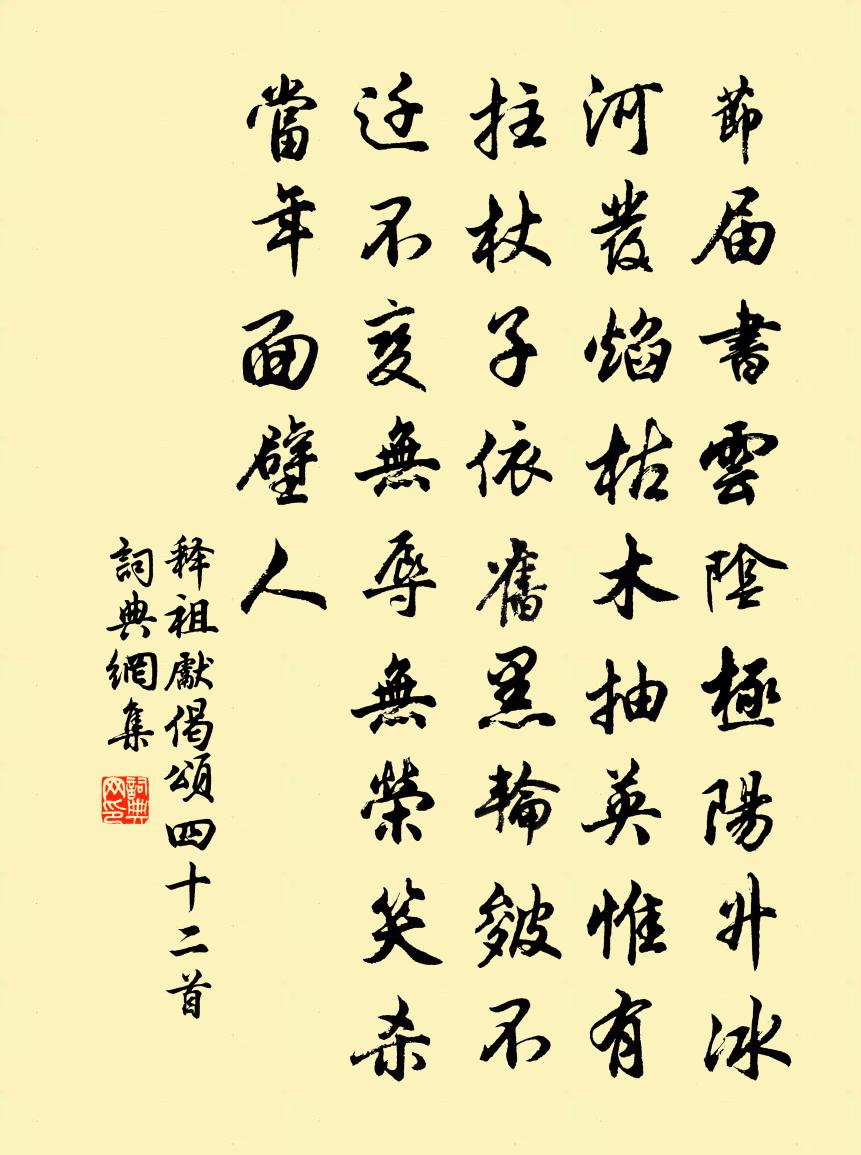 節届書雲陰極陽升冰
河發焰枯木抽英惟有
拄杖子依舊黑輪皴不
迁不变無辱無榮笑杀
當年面壁人
释祖獻偈頌四十二首
詞典網集
詞典网印